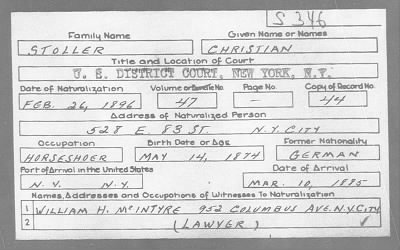 S 346
Family Name Given Name or Names
STOLLER CHRISTIAN
Title and Location of Court
U. S. DISTRICT COURT, NEW YORK, N.Y.
Date of Naturalization Volume or Bundle No. Page No. Copy of Record No.
FEB. 26, 1896 47 — 44
Address of Naturalized Person
528 E. 83 ST. N.Y. CITY
Occupation Birth Date or Age Former Nationality
HORSESHOER MAY 14, 1874 GERMAN
Port of Arrival in the United States Date of Arrival
N.Y. N.Y. MAR. 10, 1885
Names, Addresses and Occupations of Witnesses To Naturalization
1 WILLIAM H. McINTYRE 952 COLUMBUS AVE. N.Y. CITY
2 (LAWYER)